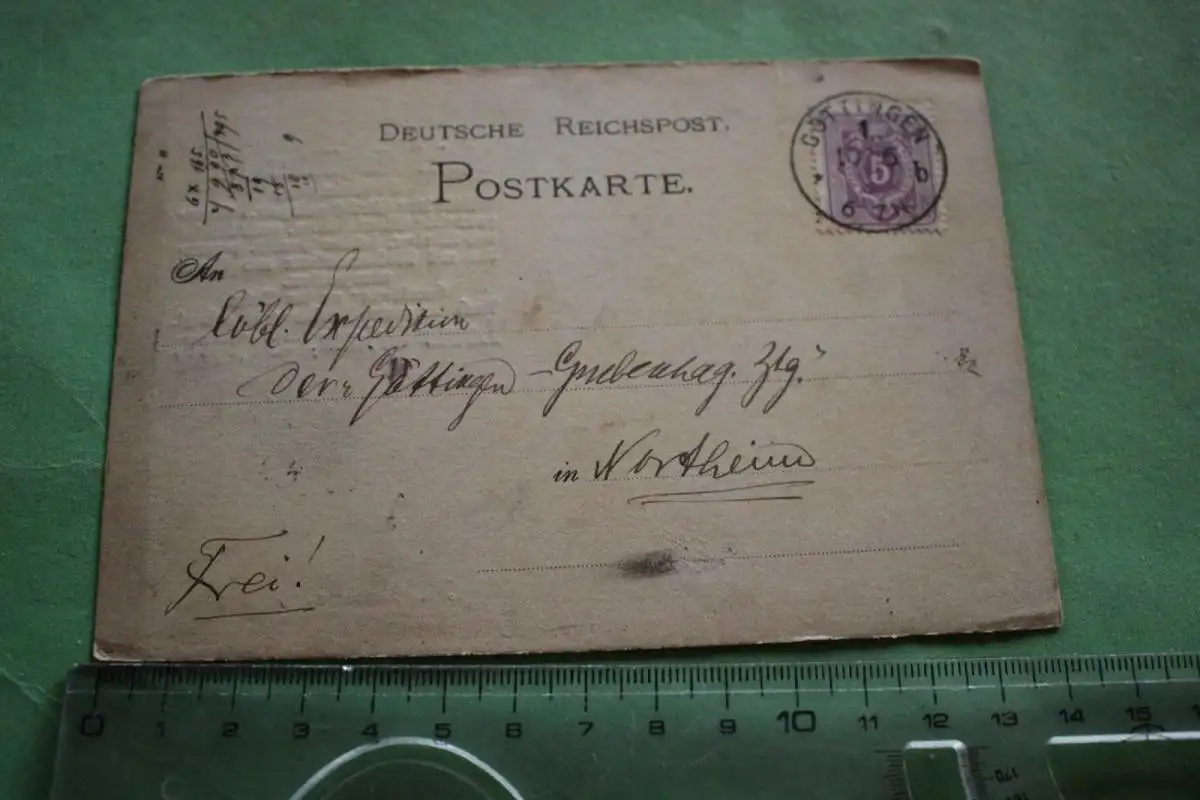 DEUTSCHE REICHSPOST.
POSTKARTE.
GÖTTINGEN
1
b
5
An
Löbl. Expedition
der "Göttingen-Grubenhag. Ztg."
in Northeim
Frei!
6 x 165
0 1 2 3 4 5 6 7 8 9 10 11 12 13 14 15
170